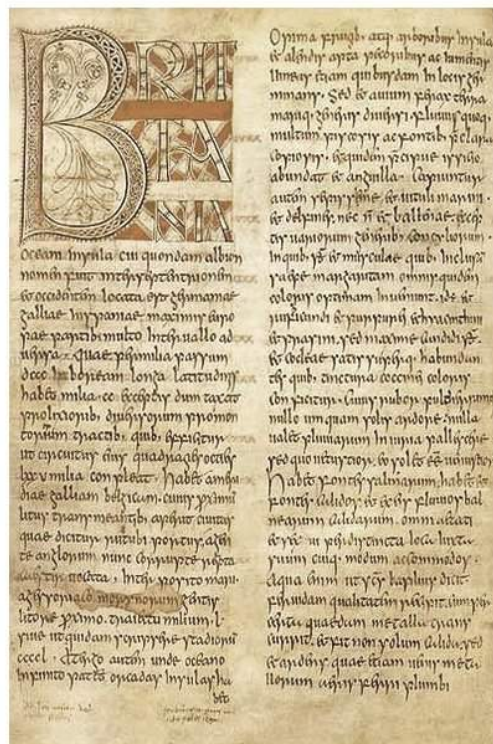 BRIT
TA
NIA
Oceani insula cui quondam albion
nomen fuit inter septentrionem
et occidentem locata est germaniae
galliae hispaniae maximis euro
pae partibus multo interuallo ad
uersa. Quae per milia passuum
dccc in boream longa latitudinis
habet milia cc exceptis dum taxat
prolixioribus diuersorum promon
toriorum tractibus quib; efficitur
ut circuitus eius quadragies octies
lxxu milia conpleat. Habet a meri
diae galliam belgicam cuius proximum
litus transmeantibus aperit ciuitas
quae dicitur rutubi portus a gen
te anglorum nunc corrupte repta
caestir uocata. Interposito mari
a gessoriaco morynorum gentis
litore proximo traiectu milium l.
siue ut quidam scripsere stadiorum
ccccl. A tergo autem unde oceano
infinito patet orcadas insulas ha
bet
Opima frugib; atq; arboribus insula
et alendis apta pecoribus ac iumentis
uineas etiam quibusdam in locis ger
minans. Sed et auium ferax terra
mariq; generis diuersi. Fluuiis quoq;
multum piscosis ac fontib; p̄clara
copiosis. et quidem p̄cipue issicio
abundat et anguilla. Capiuntur
autem saepissime et uituli marini.
et delfines nec n̄ et ballenae except
tis uariorum generib; concyliorum.
In quib; s̄t et musculae quib; inclusam
saepe margaritam omnis quidem
coloris optimam inueniunt. id. ē.
et rubicundi et purpurei et hyacinthini
et prasini. sed maxime candidi. s̄t.
et cocleae satis superq; habundan
tes quib; tinctura coccinei coloris
conficitur. Cuius rubor pulcherrimus
nullo umquam solis ardore. nulla
ualet pluuiarum iniuria pallescere
sed quo uetustior. eo solet esse uenustior
Habet fontes salinarum. habet et
fontes calidos. et ex eis fluuios bal
nearum calidarum. omni aetati
et sexui per distincta loca iuxta
suum cuiq; modum accommodos.
Aqua enim ut scs basilius dicit
feruidam qualitatem recipit. cum per
certa quaedam metalla trans
currit. et fit non solum calida. sed
et ardens quae etiam uenis metal
lorum aeris ferri plumbi